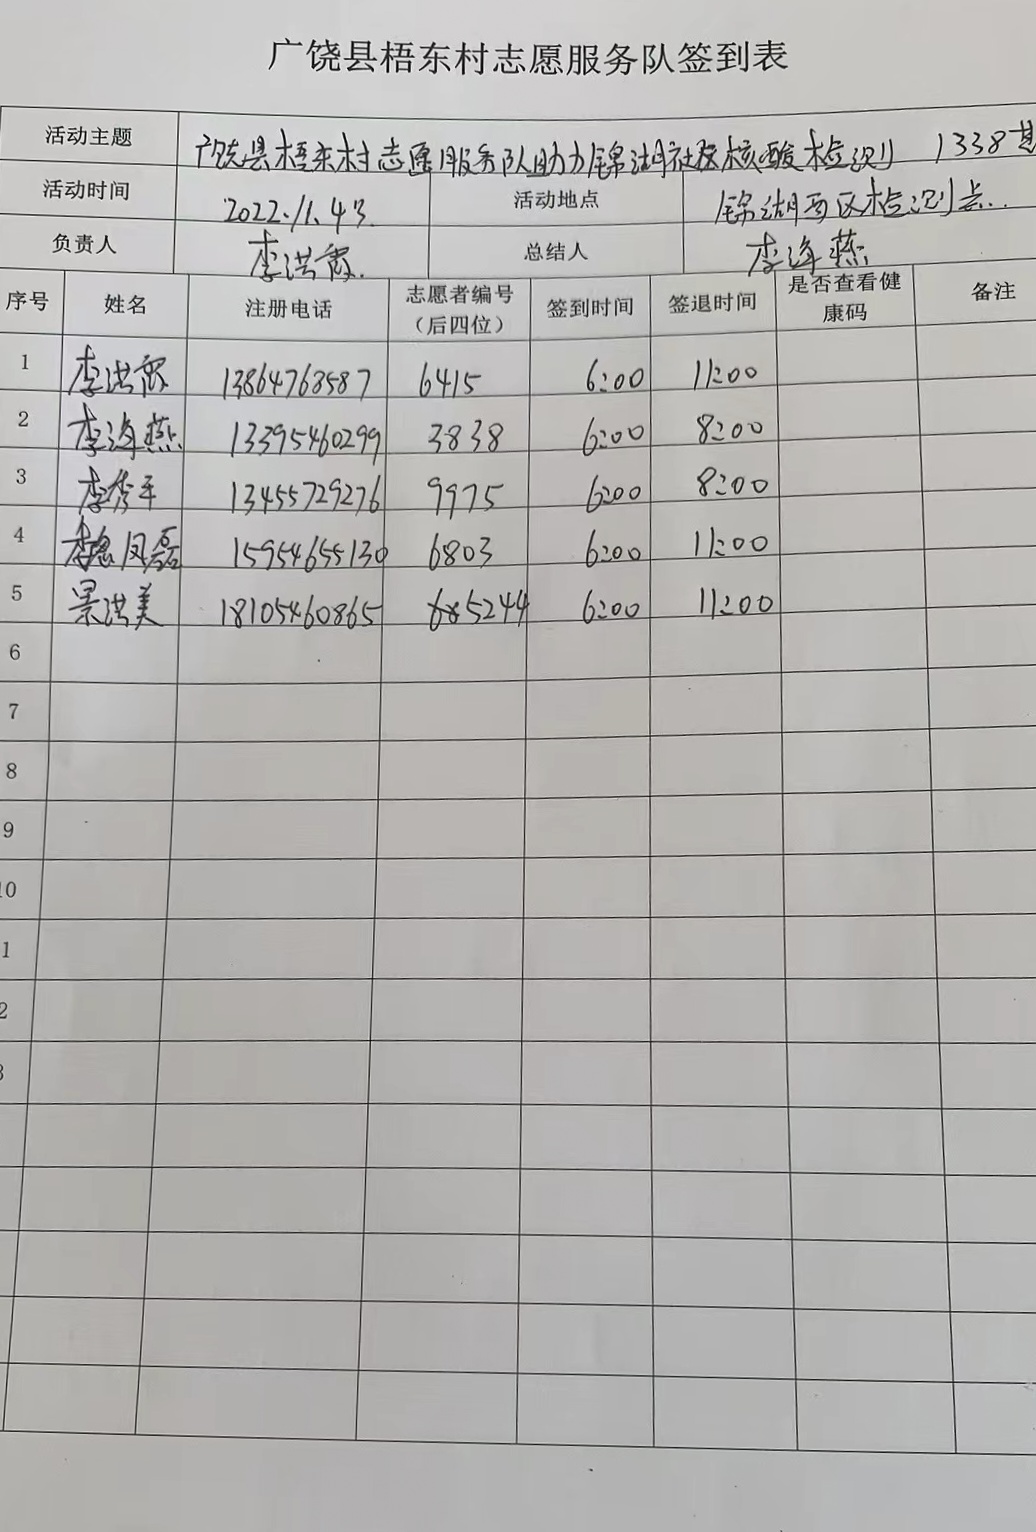 广饶县梧东村志愿服务队签到表
活动主题 广饶县梧东村志愿服务队助力锦湖社区核酸检测 1338基
活动时间 2022.11.4号 活动地点 锦湖西区检测点.
负责人 李洪霞. 总结人 李海燕
序号 姓名 注册电话 志愿者编号（后四位） 签到时间 签退时间 是否查看健康码 备注
1 李洪霞 13864768587 6415 6:00 11:00
2 李海燕 13395460299 3838 6:00 8:00
3 李秀平 13455729276 9975 6:00 8:00
4 凤磊 15954655130 6803 6:00 11:00
5 景洪美 18105460865 5244 6:00 11:00
6
7
8
9
10
1
2
3